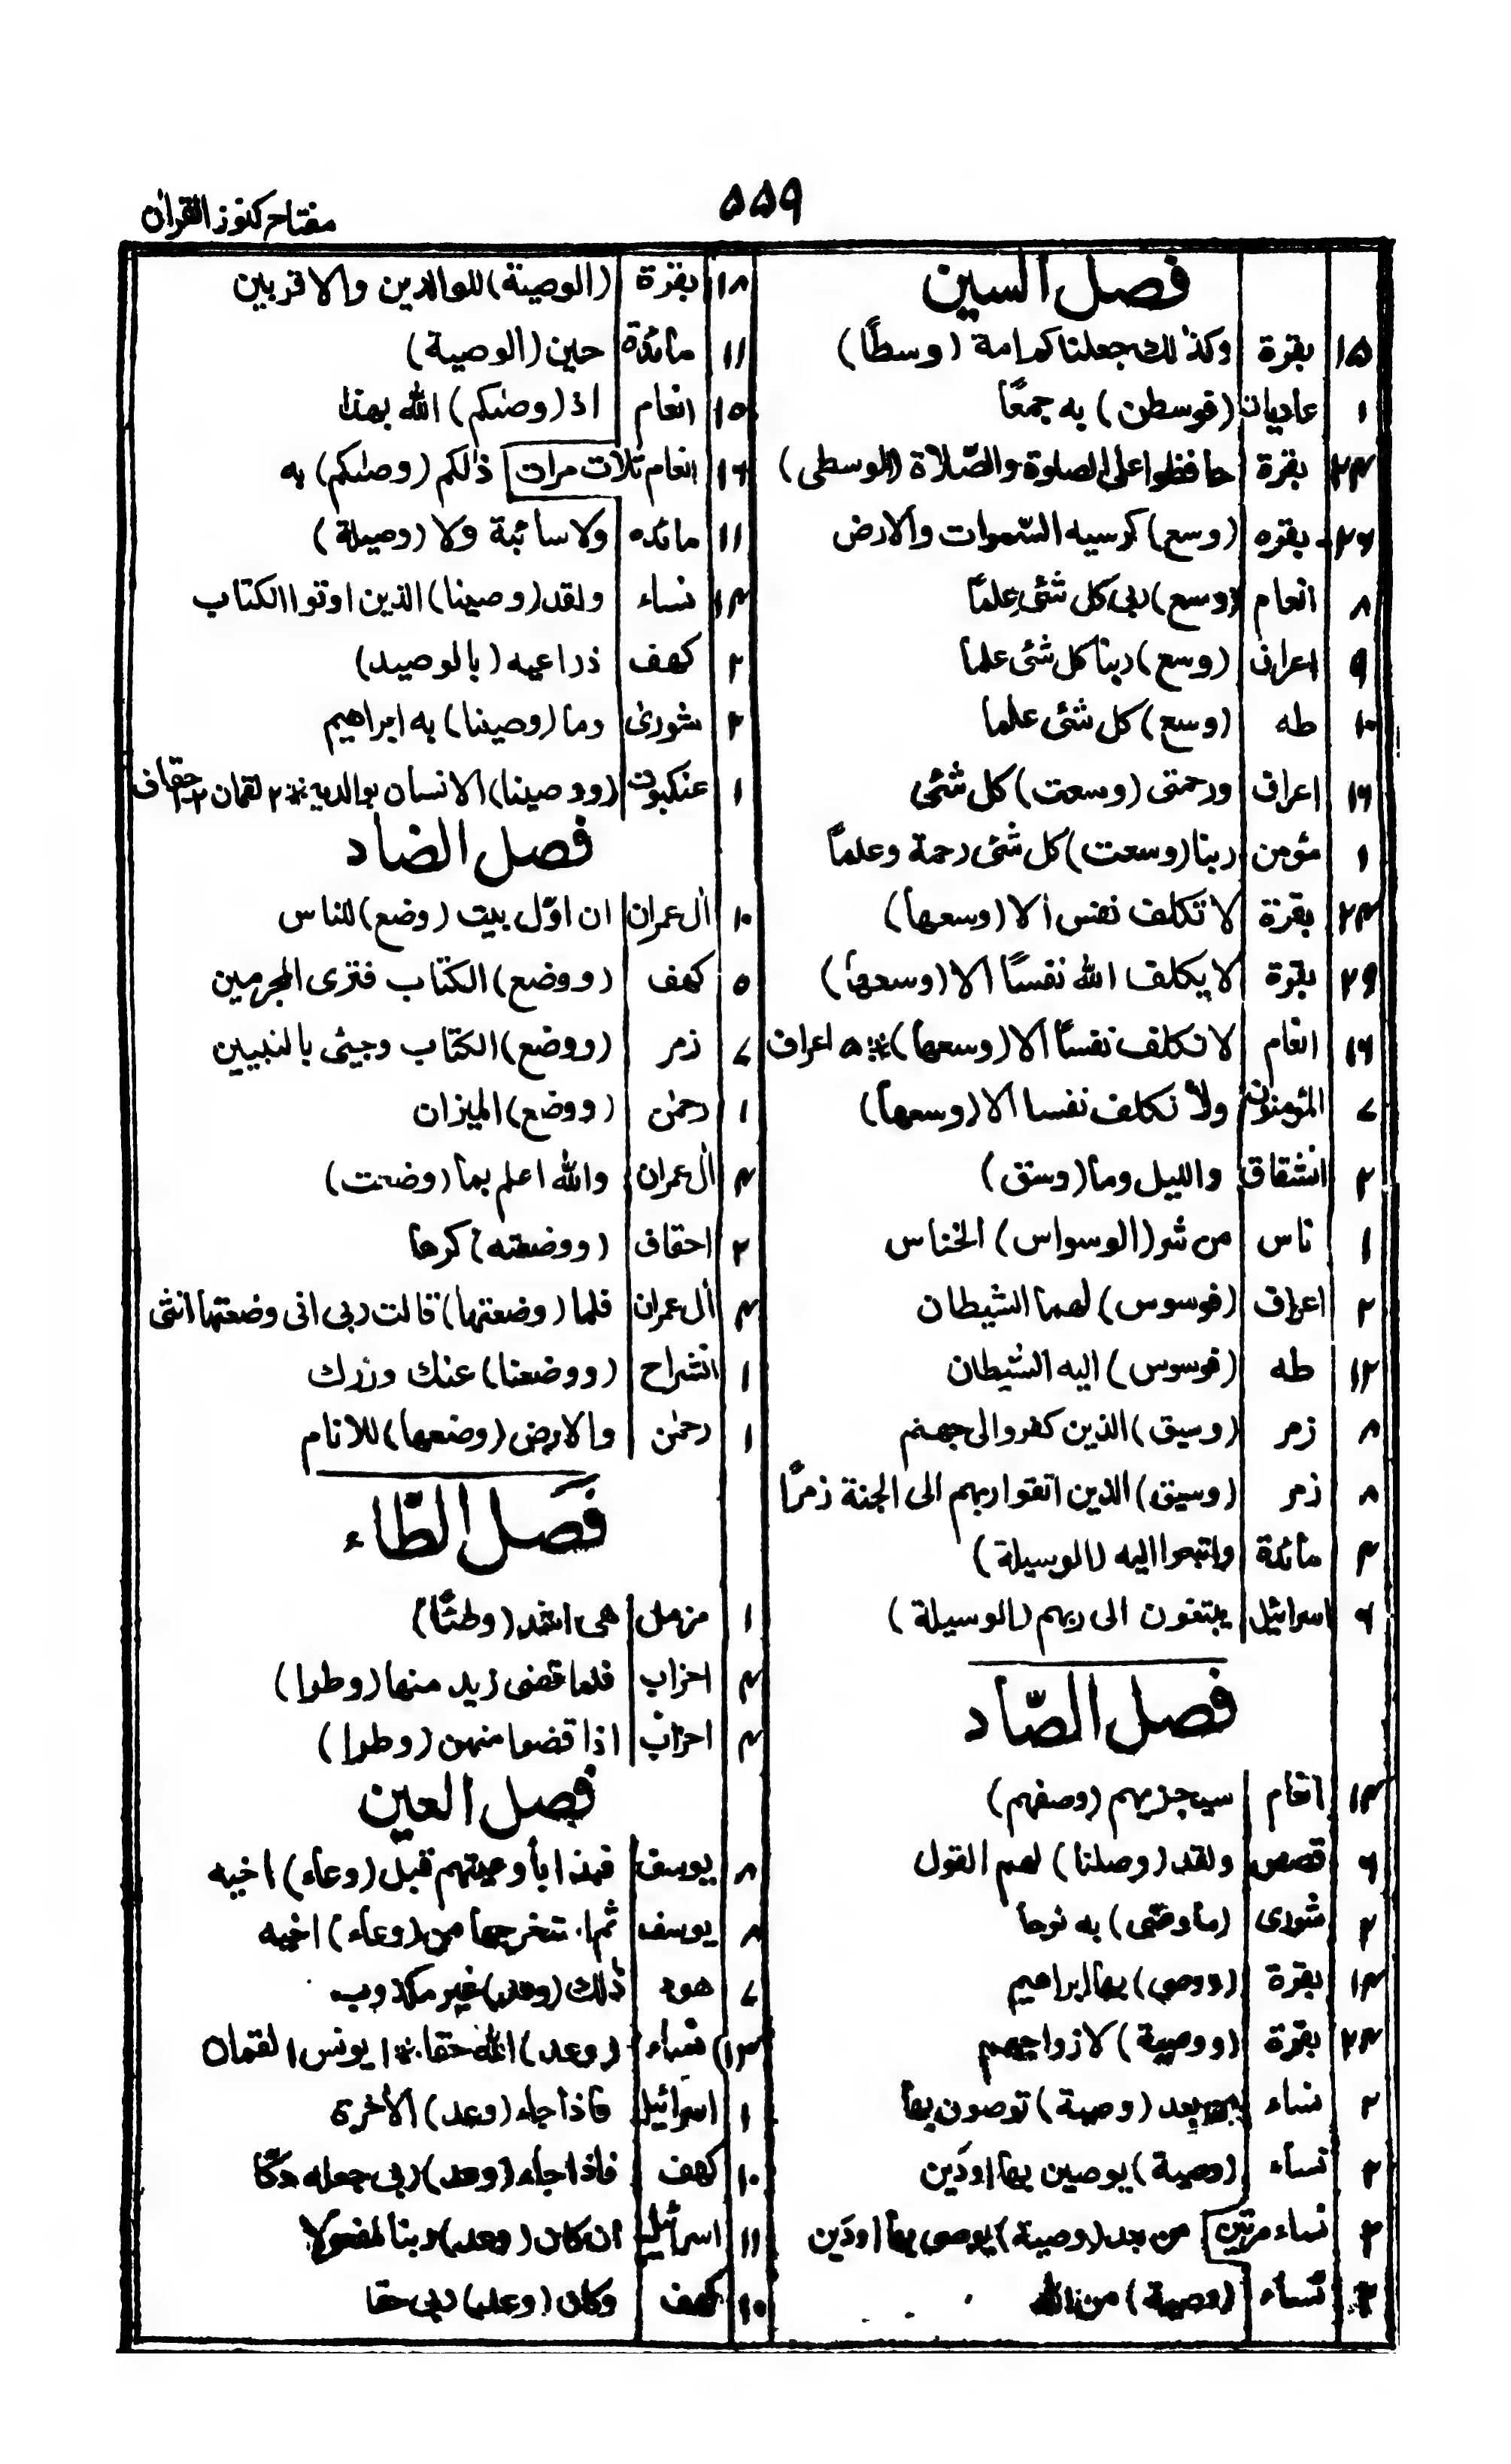 ۵۵۹
مفتاح كنوز القران
فصل السین
۱۵ بقرة وكذٰلك جعلناكم امة (وسطًا)
۱ عادیات (فوسطن) به جمعًا
۲۴ بقرة حافظوا على الصلوة والصّلاة (الوسطى)
۲۶ بقره (وسع) كرسيه السّموات والارض
۸ انعام (وسع) ربى كل شئى علمًا
۹ اعراف (وسع) ربنا كل شئى علما
۱۰ طه (وسع) كل شئى علما
۱۶ اعراف ورحمتى (وسعت) كل شئى
۱ مؤمن ربنا (وسعت) كل شئى رحمة وعلماً
۲۴ بقرة لا تكلف نفس الا (وسعها)
۲۹ بقرة لا يكلف الله نفسًا الا (وسعها)
۱۶ انعام لا نكلف نفسًا الا (وسعها) ۵ اعراف
۷ المؤمنون ولا نكلف نفسا الا (وسعها)
۲ انشقاق والليل وما (وسق)
۱ ناس من شر (الوسواس) الخناس
۲ اعراف (فوسوس) لهما الشيطان
۱۲ طه (فوسوس) اليه الشيطان
۸ زمر (وسيق) الذين كفروا لى جهنم
۸ زمر (وسيق) الذين اتقوا ربهم الى الجنة زمرًا
۴ مائدة وابتغوا اليه (الوسيلة)
۶ اسرائيل يبتغون الى ربهم (الوسيلة)
فصل الصّاد
۱۴ انعام سيجزيهم (وصفهم)
۶ قصص ولقد (وصلنا) لهم القول
۲ شورى (ما وصّى) به نوحا
۱۴ بقرة (ووصى) بها ابراهيم
۲۴ بقرة (ووصية) لازواجهم
۲ نساء من بعد (وصية) توصون بها
۲ نساء (وصية) يوصين بها اودَين
۲ نساء مرتين من بعد (وصية) يوصى بها اودَين
۲ نساء (وصية) من الله
۱۸ بقرة (الوصية) للوالدين والاقربين
۱۱ مائدة حين (الوصية)
۱۵ انعام اذ (وصٰكم) الله بهذا
۱۶ انعام ثلات مرات ذالكم (وصٰكم) به
۱۱ مائده ولا سائبة ولا (وصيلة)
۱۴ نساء ولقد (وصينا) الذين اوتوا الكتاب
۲ كهف ذراعيه (بالوصيد)
۲ شورىٰ وما (وصينا) به ابراهيم
۱ عنكبوت (ووصينا) الانسان بوالديه ۲ لقمان ۲ احقاف
فصل الضاد
۱۰ اٰل عمران ان اوّل بيت (وضع) للناس
۵ كهف (ووضع) الكتاب فترى المجرمين
۷ زمر (ووضع) الكتاب وجيئى بالنبيين
۱ رحمٰن (ووضع) الميزان
۴ اٰل عمران والله اعلم بما (وضعت)
۲ احقاف (ووضعته) كرها
۴ اٰل عمران فلما (وضعتها) قالت ربى انى وضعتها انثى
۱ انشراح (ووضعنا) عنك وزرك
۱ رحمٰن والارض (وضعها) للانام
فصل الطّاء
۱ مزمل هى اشد (وطئًا)
۴ احزاب فلما قضى زيد منها (وطرا)
۴ احزاب اذا قضوا منهن (وطرا)
فصل العين
۸ يوسف فبدا باوعيتهم قبل (وعاء) اخيه
۸ يوسف ثم استخرجها من (وعاء) اخيه
۷ هود ذٰلك (وعد) غير مكذوب
۱۳ نساء (وعد) الله حقا ۱ يونس ۱ لقمان ۵
۱ اسرائيل فاذا جاء (وعد) الاٰخرة
۱۰ كهف فاذا جاء (وعد) ربى جعله دكّا
۱۱ اسرائيل ان كان (وعد) ربنا لمفعولا
۱۰ كهف وكان (وعد) ربى حقا